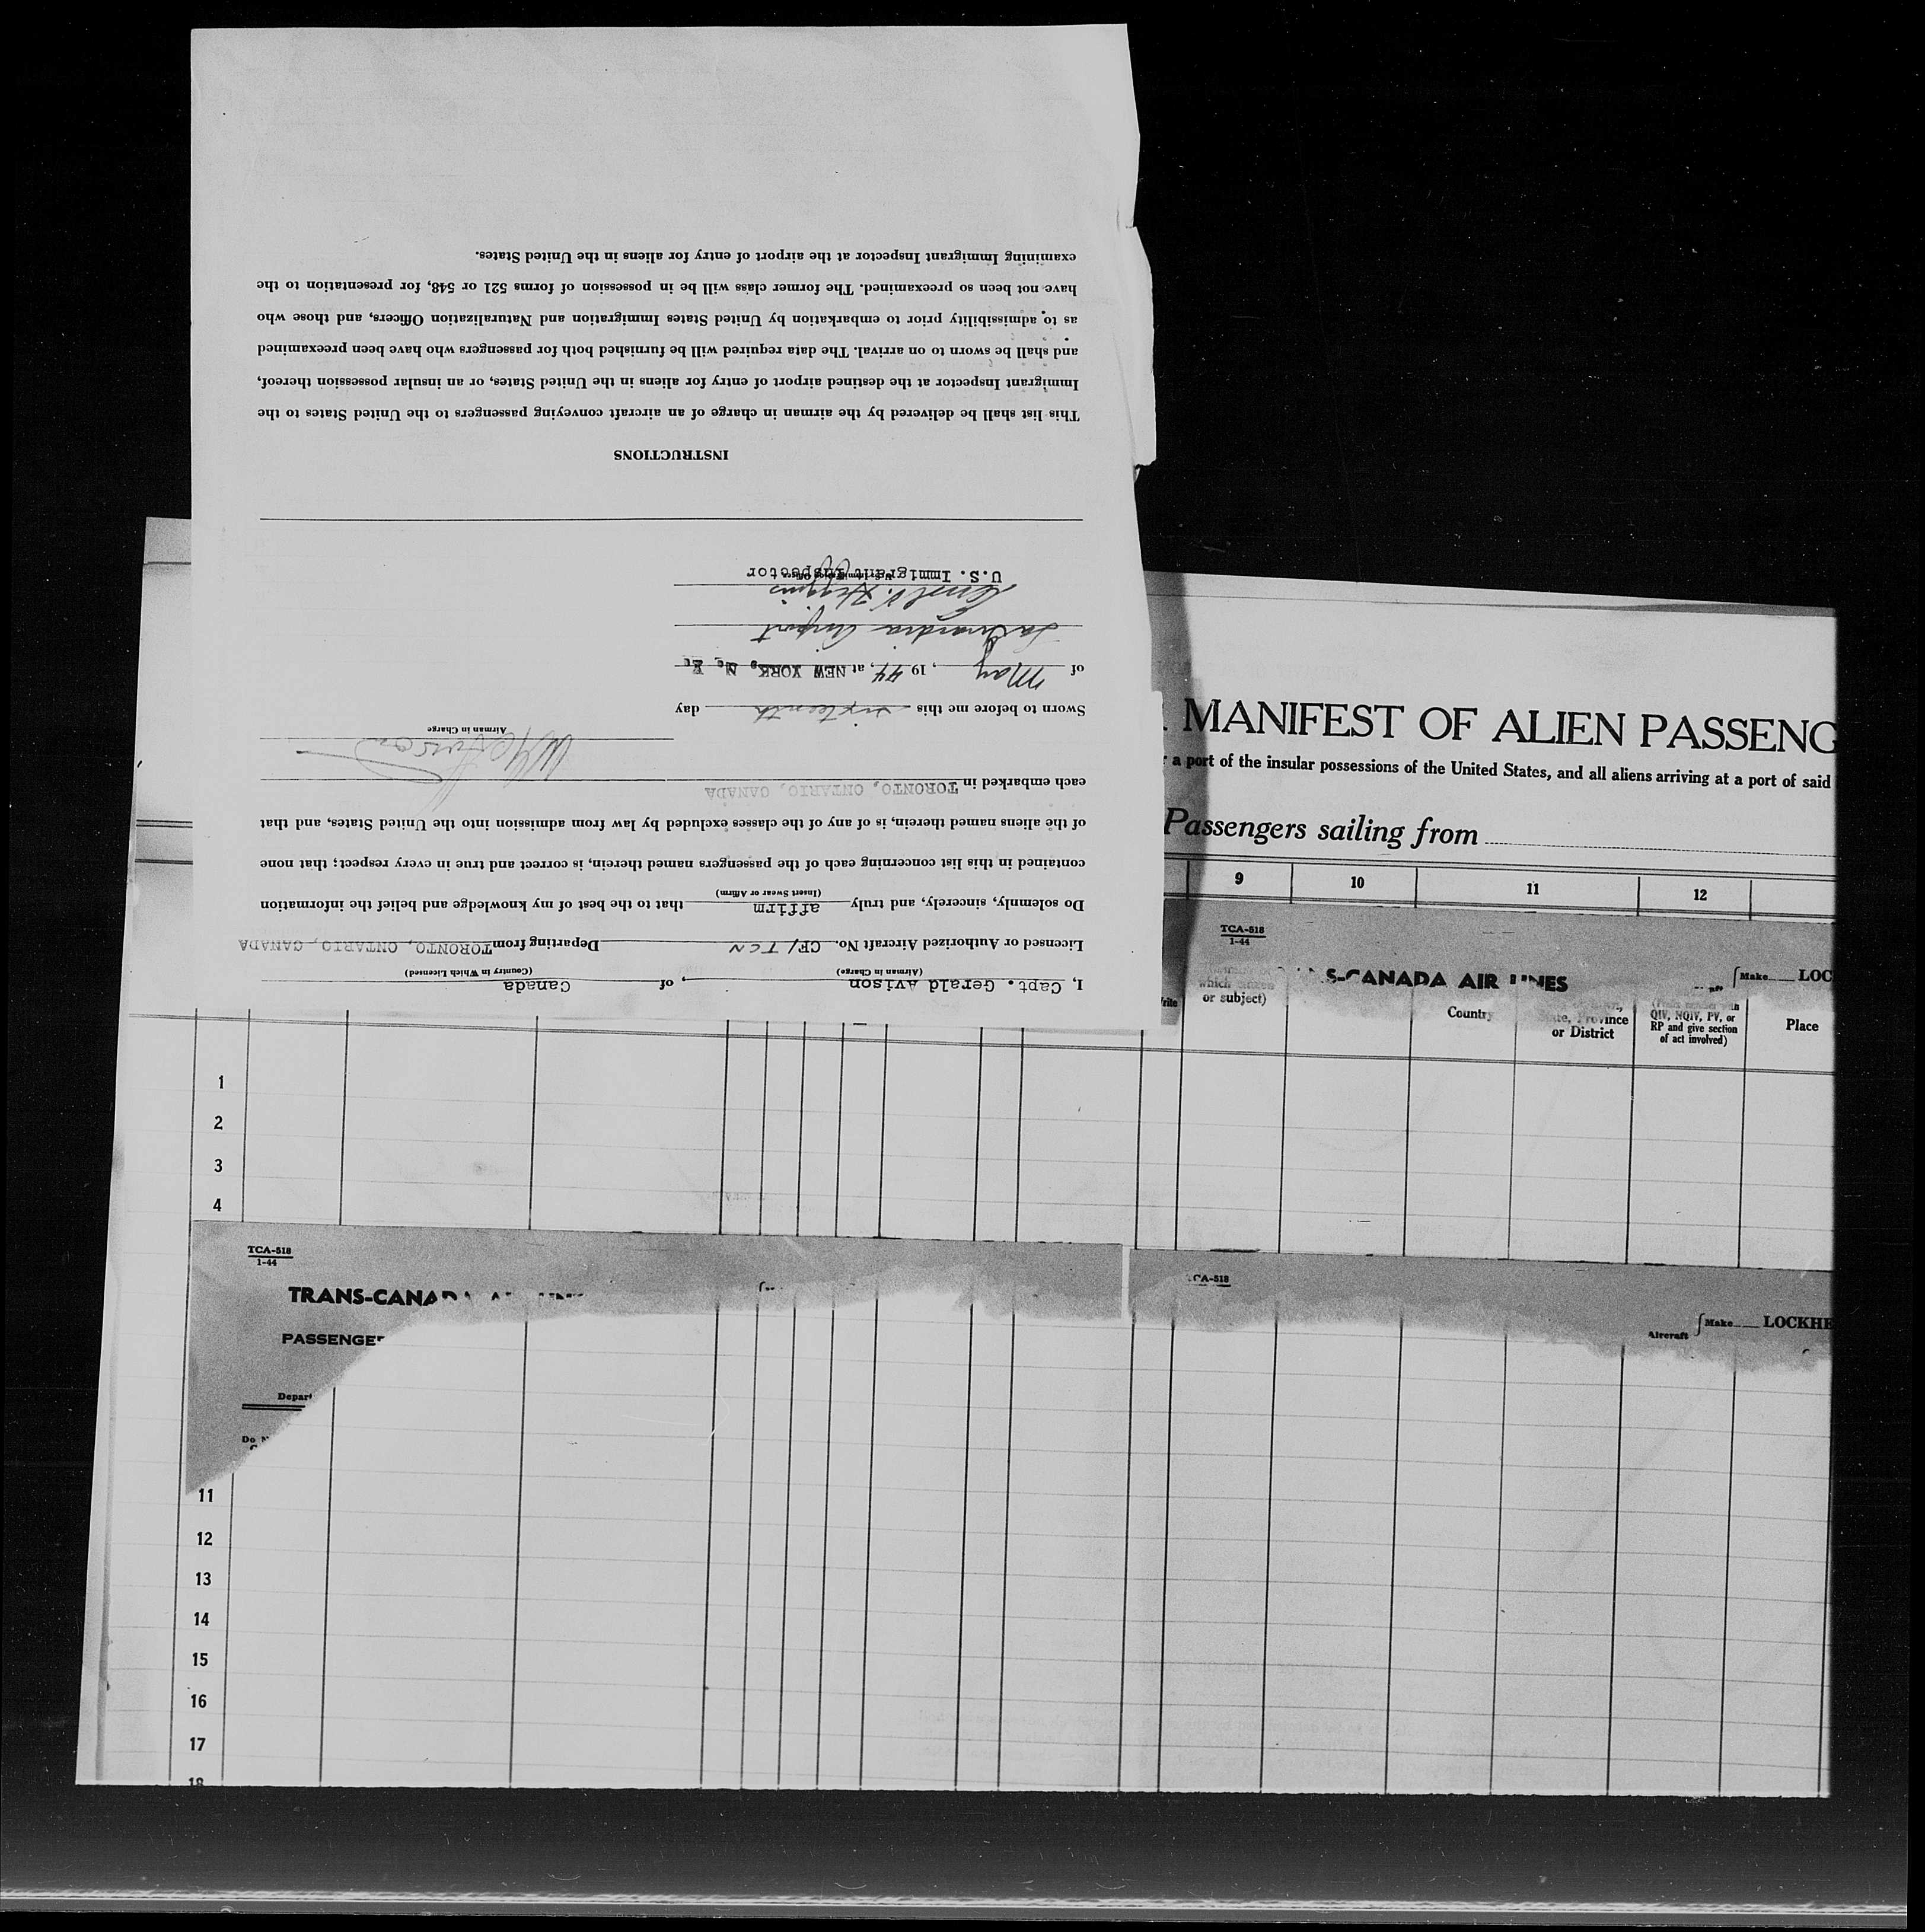 I, Capt. Gerald Avison, of Canada
(Airman in Charge) (Country in Which Licensed)
Licensed or Authorized Aircraft No. CF/TCN Departing from TORONTO, ONTARIO, CANADA
Do solemnly, sincerely, and truly affirm that to the best of my knowledge and belief the information
(Insert Swear or Affirm)
contained in this list concerning each of the passengers named therein, is correct and true in every respect; that none
of the aliens named therein, is of any of the classes excluded by law from admission into the United States, and that
each embarked in TORONTO, ONTARIO, CANADA
Airman in Charge
Sworn to before me this sixteenth day
of May, 1944, at NEW YORK, N. Y.
LaGuardia Airport
U.S. Immigrant Inspector
INSTRUCTIONS
This list shall be delivered by the airman in charge of an aircraft conveying passengers to the United States to the
Immigrant Inspector at the destined airport of entry for aliens in the United States, or an insular possession thereof,
and shall be sworn to on arrival. The data required will be furnished both for passengers who have been preexamined
as to admissibility prior to embarkation by United States Immigration and Naturalization Officers, and those who
have not been so preexamined. The former class will be in possession of forms 521 or 548, for presentation to the
examining Immigrant Inspector at the airport of entry for aliens in the United States.
MANIFEST OF ALIEN PASSENG
a port of the insular possessions of the United States, and all aliens arriving at a port of said
Passengers sailing from
9 10 11 12
TCA-518
1-44
S-CANADA AIR LINES
Make LOC
which citizen
or subject)
Country
State, Province
or District
QIV, NQIV, PV, or
RP and give section
of act involved)
Place
1
2
3
4
TCA-518
1-44
TRANS-CANADA
PASSENGER
Depart
Do N
CA-518
Aircraft Make LOCKHE
11
12
13
14
15
16
17
18